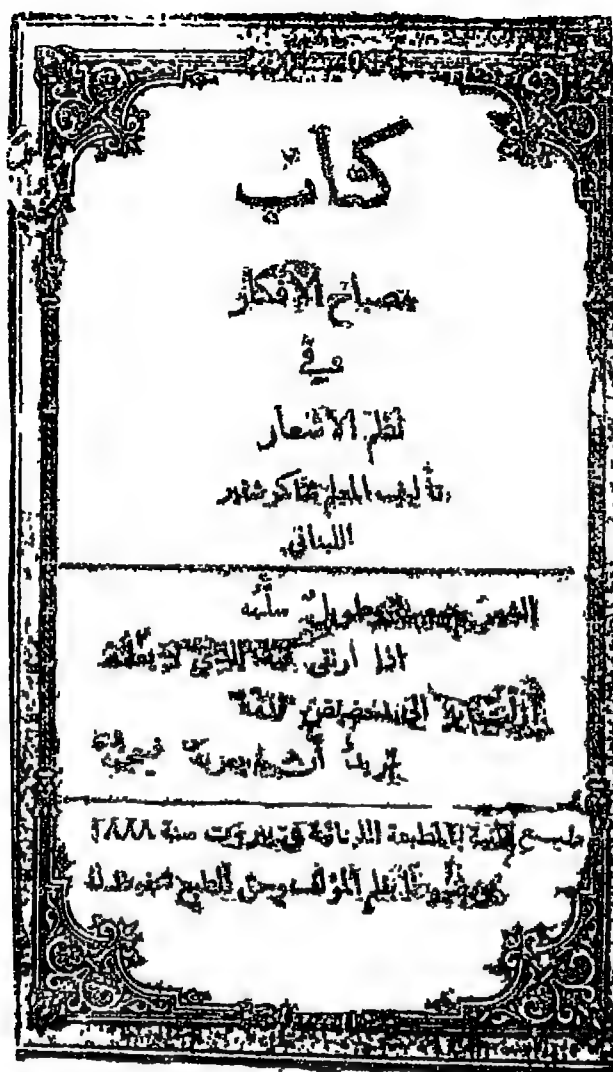 كتاب
مصباح الافكار
في
نظم الاشعار
تأليف المعلم شاكر شقير
اللبناني
الشعر صعب وطويل سلمه
اذا ارتقى فيه الذي لا يعلمه
زلت به الى الحضيض قدمه
يريد أن يعربه فيعجمه
طبع بالمطبعة اللبنانية في بيروت سنة
المؤلف وحق الطبع محفوظ له